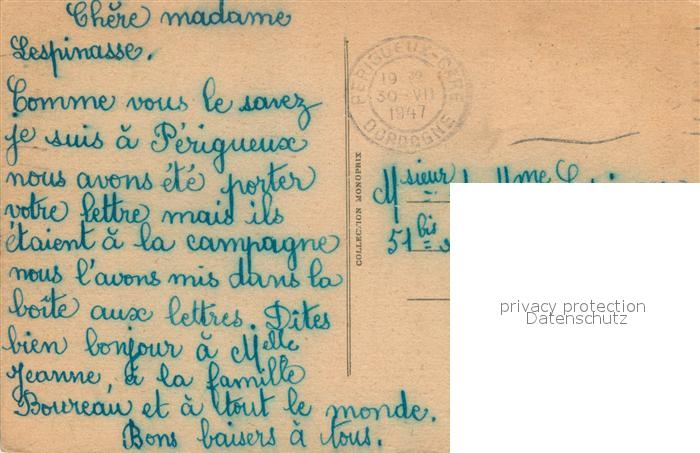 Chère madame
Lespinasse.
Comme vous le savez
je suis à Périgueux
nous avons été porter
votre lettre mais ils
étaient à la campagne
nous l'avons mis dans la
boîte aux lettres. Dites
bien bonjour à Melle
Jeanne, à la famille
Boureau et à tout le monde.
Bons baisers à tous.
COLLECTION MONOPRIX
PÉRIGUEUX-GARE
19
30-VII
1947
DORDOGNE
Msieur Mme
51 bis
privacy protection
Datenschutz